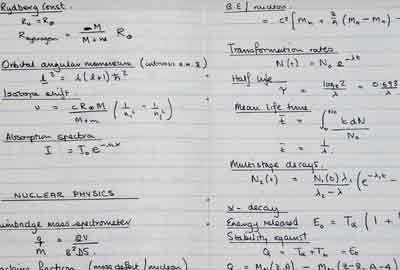 Rydberg Const.
R₀ = R∞
R hydrogen = M / M+m R∞
Orbital angular momentum
l² = l(l+1)ħ²
Isotope shift.
ν = cR∞M / M+m (1/n₁² - 1/n₂²)
Absorption spectra
I = I₀e
NUCLEAR PHYSICS
mass spectrometer
q/m =
(mass defect / nucleon)
B.E / nucleon
= c² [Mn + (MH - Mn) -
Transformation rates
N(t) = N₀ e^-λt
Half life
τ = logₑ2 / λ = 0.693 / λ
Mean life time
t̄ = ∫ t dN / N₀
t̄ = 1/λ
Multistage decays.
N₂(t) = N₁(0)λ₁ / λ₂ - λ₁ (e^-λ₁t -
α - decay
Energy released E₀ = Tα (1 +
Stability against
Q = Tα + Tb = E₀